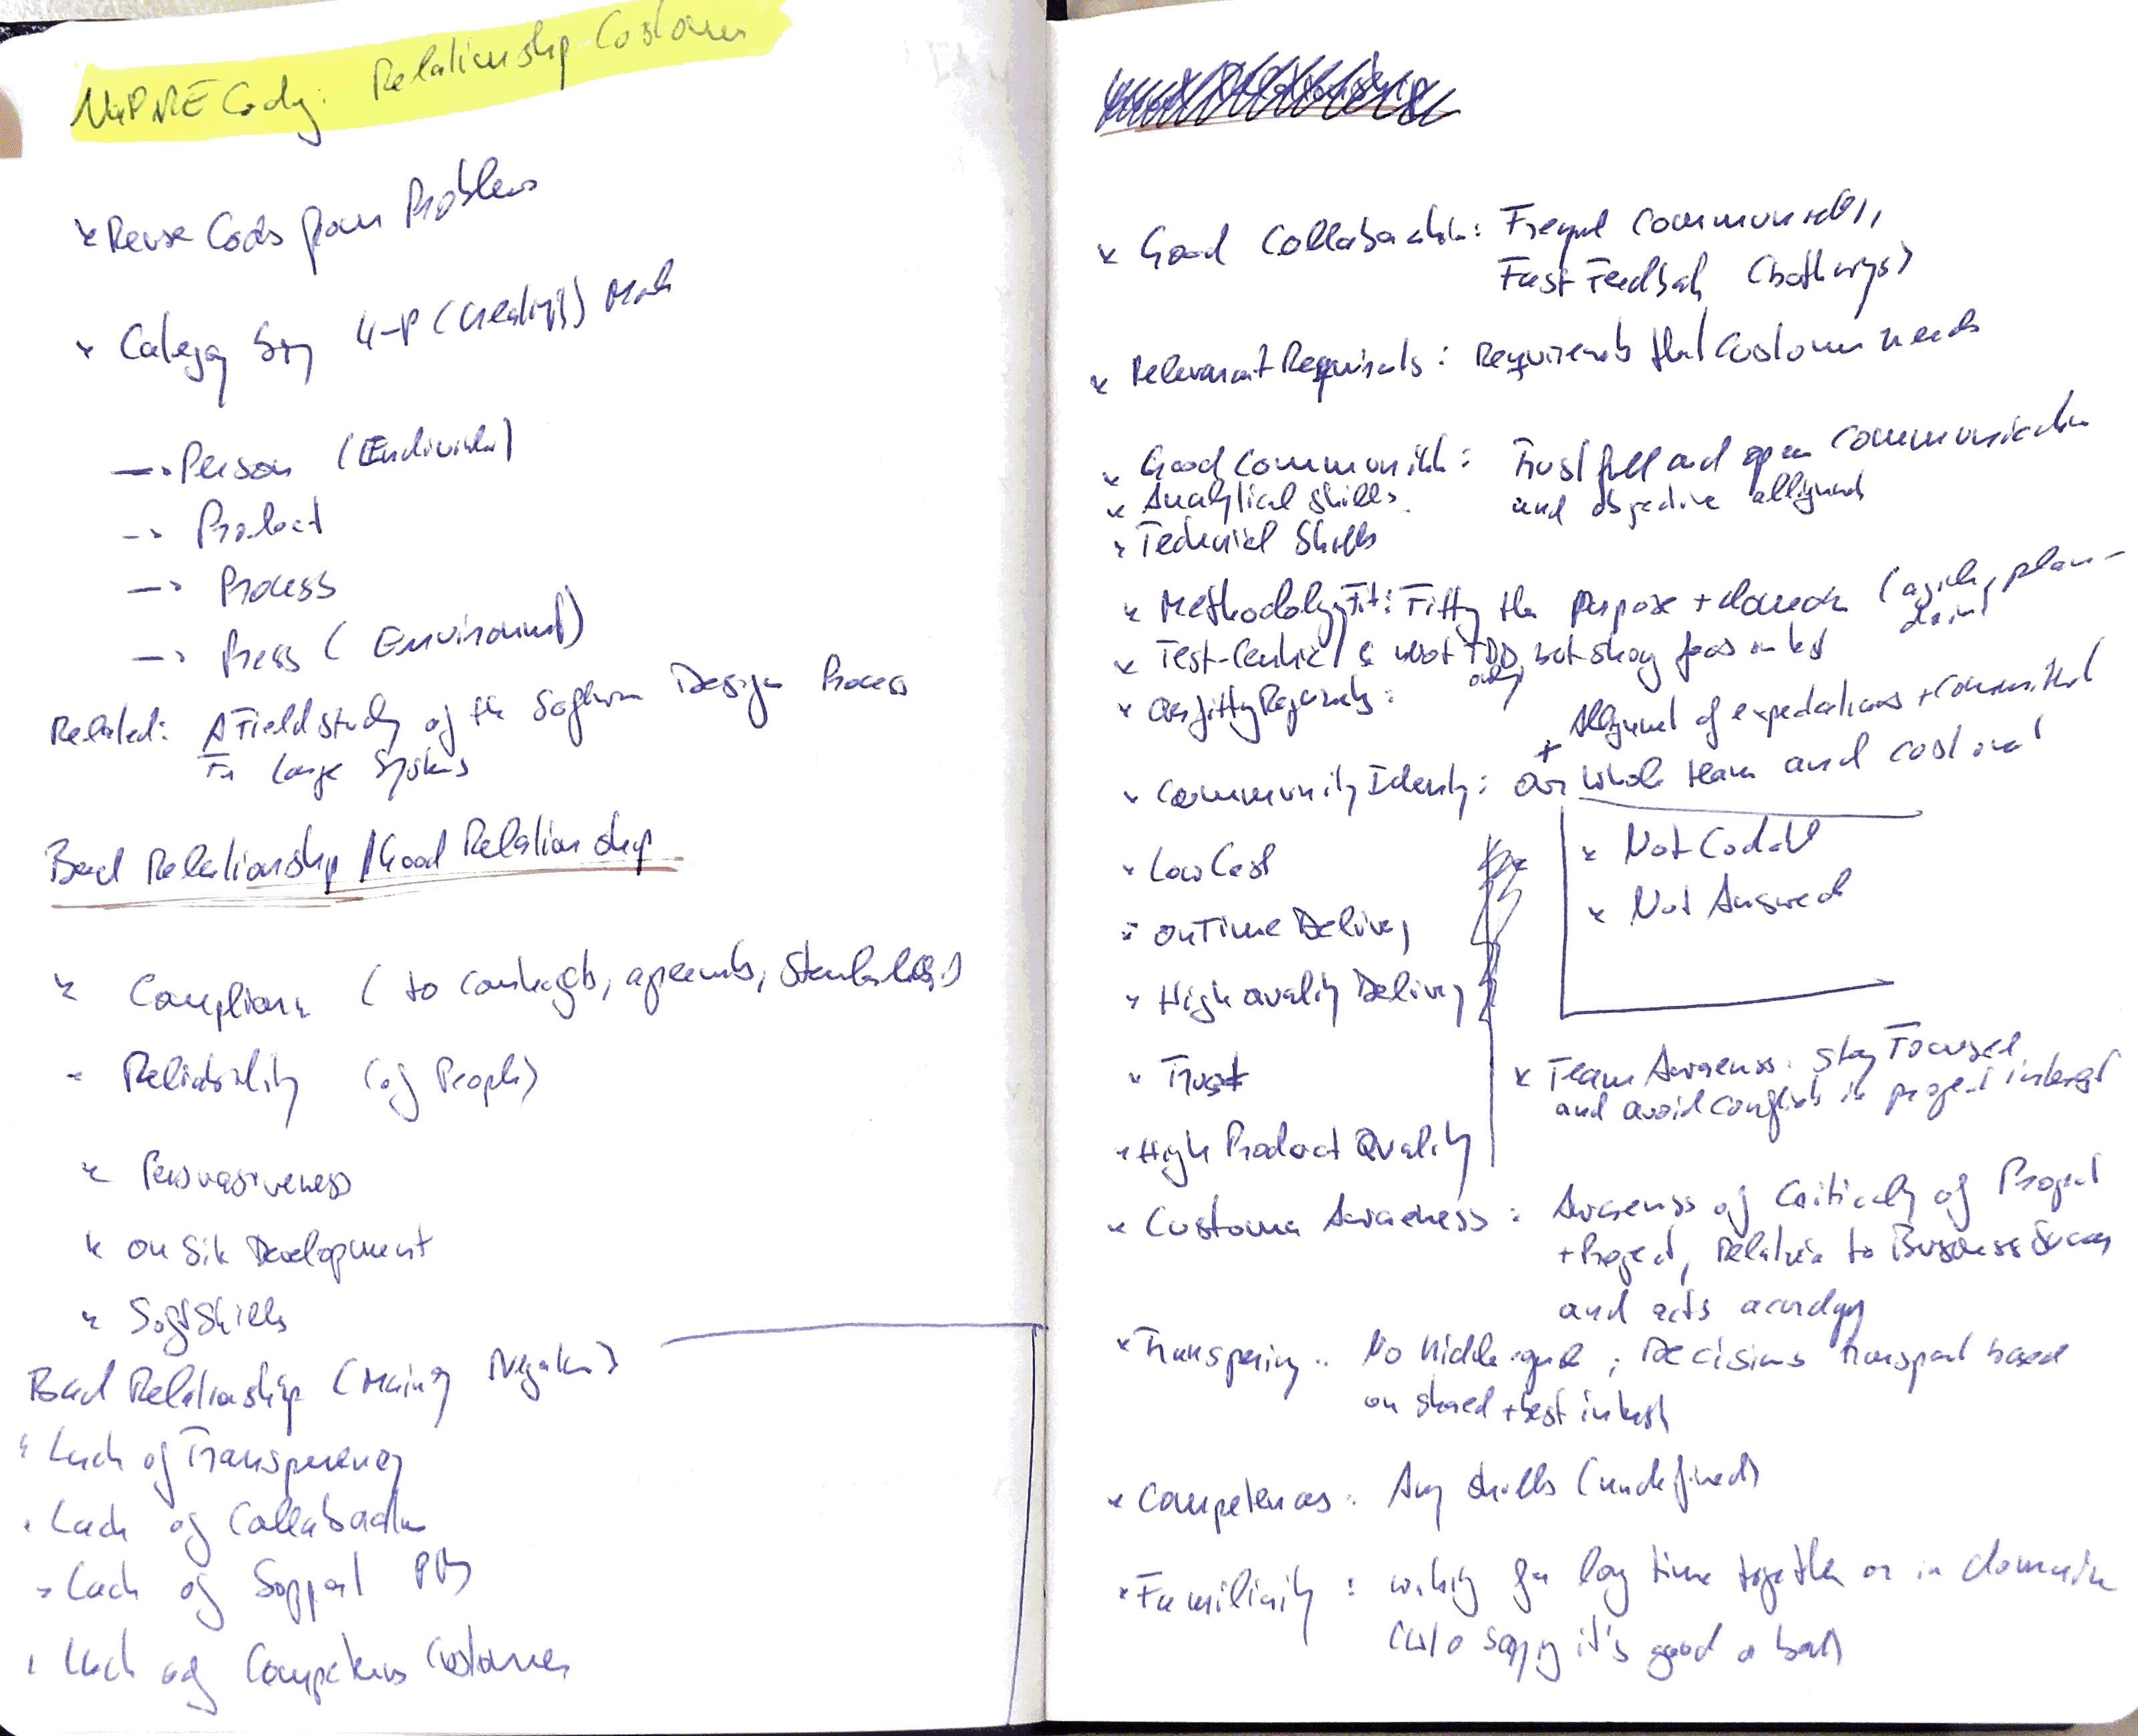 NaPiRE Coding: Relationship Customer
* Reuse Codes from Problems
* Category by 4-P (Creativity) Mode
-> Person (Individual)
-> Product
-> Process
-> Press (Environment)
Related: A Field study of the Software Design Process
In Large Systems
Bad Relationship / Good Relationship
* Compliance (to contracts, agreements,
- Reliability (of People)
* Persuasiveness
* On Site Development
* Soft Skills
Bad Relationship (Mainly Negative)
* Lack of Transparency
* Lack of Collaboration
* Lack of Support PM
* Lack of Competences Customer
* Good Collaboration: Frequent Communication,
Fast Feedback (both ways)
* Relevant Requirements: Requirements that Customer needs
* Good Communication: Trustfull and open communication
and objective allignment
* Analytical Skills
* Technical Skills
* Methodology Fit: Fitting the purpose + domain (agile, plan-
driven)
* Test-Centric / not TDD only, but strong focus on test
* Requirements:
+ Allignment of expectations + commitment
* Community Identity: Our whole team and customer
* Low Cost
* On Time Delivery
* High Quality Delivery
* Trust
* High Product Quality
* Not Coded
* Not Answered
* Team Awareness: Stay Focused
and avoid conflicts in project interest
* Customer Awareness: Awareness of Criticality of Project
+ Project, Relation to Business Success
and acts acording
* Transparency: No hidden ; Decisions transparent based
on shared + best interest
* Competences: Any skills (undefined)
* Familiarity: working for long time together or in domain
(w/o saying it's good or bad)